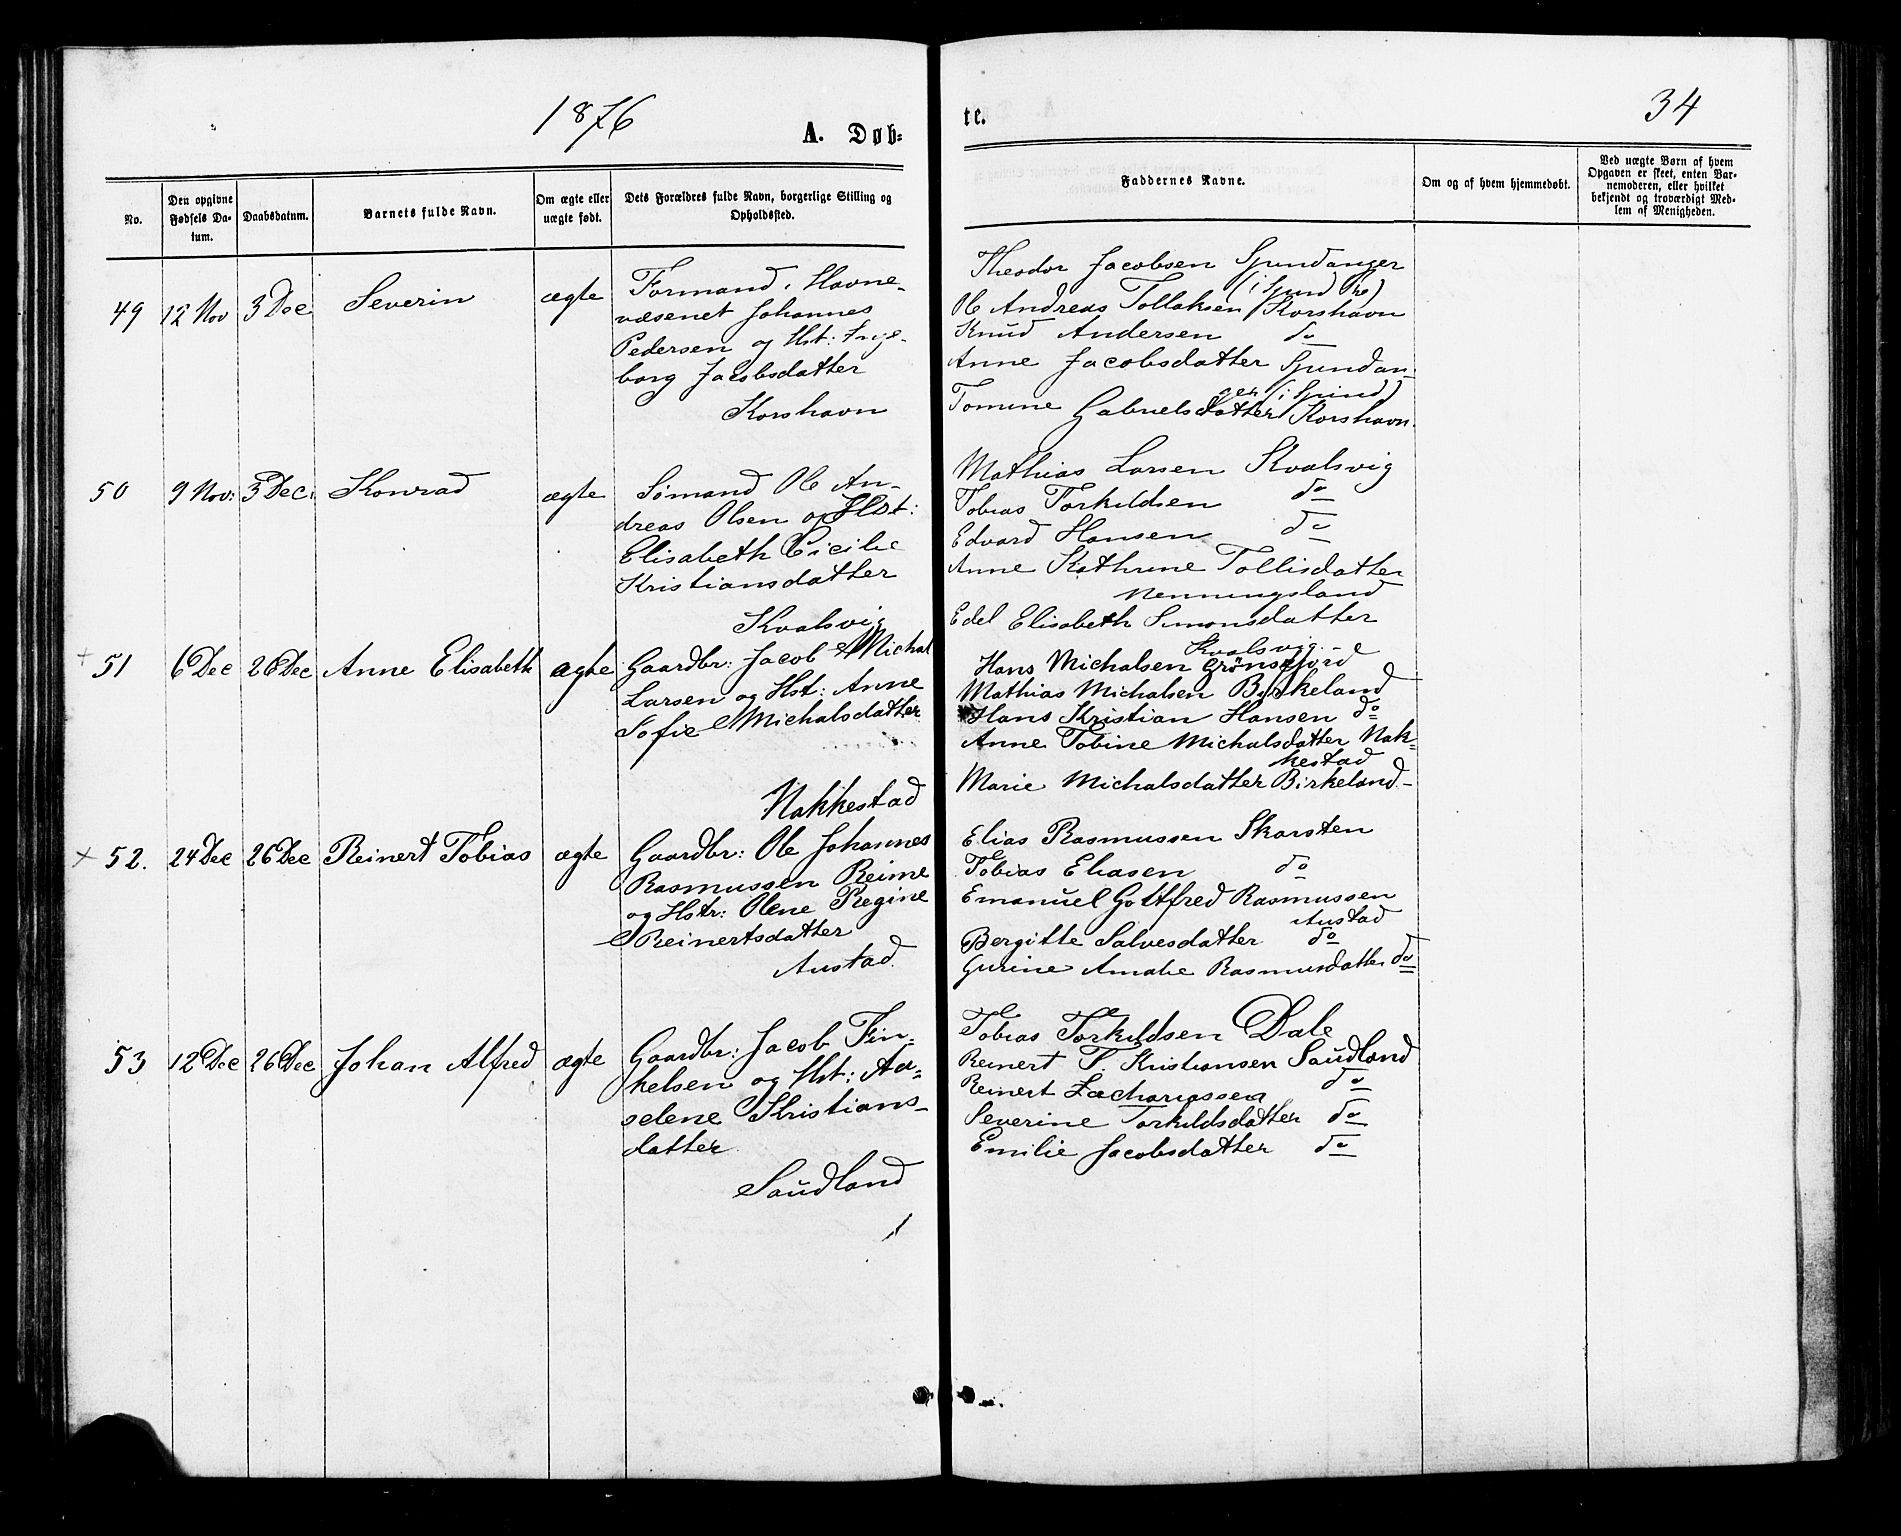 1876
A. Døb-
te.
34
No.
Den opgivne Fødsels Da-tum.
Daabsdatum.
Barnets fulde Navn.
Om ægte eller uægte født.
Dets Forældres fulde Navn, borgerlige Stilling og Opholdssted.
Faddernes Navne.
Om og af hvem hjemmedøbt.
Ved uægte Børn af hvem Opgaven er skeet, enten Bar-nemoderen, eller hvilket bekjendt og troværdigt Med-lem af Menigheden.
49 12 Nov 3 Dec Severin ægte
Formand i Havne-
væsenet Johannes
Pedersen og Hst: Inge-
borg Jacobsdatter
Korshavn
Theodor Jacobsen Spindanger
(i Spind
Ole Andreas Tollaksen Korshavn
Knud Andersen do
Anne Jacobsdatter Spindan-
ger (i Spind)
Tomine Gabrielsdatter Korshavn.
50 9 Nov: 3 Dec. Konrad ægte
Sømand Ole An-
dreas Olsen og Hst:
Elisabeth Cicilie
Kristiansdatter
Kvalsvig
Mathias Larsen Kvalsvig
Tobias Torkildsen do
Edvard Hansen do
Anne Kathrine Tollisdatter
Nenningsland
Edel Elisabeth Simonsdatter
Kvalsvig.-
+ 51 6 Dec 26 Dec Anne Elisabeth ægte
Gaardbr: Jacob Michal
Larsen og Hst: Anne
Sofie Michalsdatter
Nakkestad
Hans Michalsen Grønsfjord
Mathias Michalsen Birkeland
Hans Kristian Hansen do
Anne Tobine Michalsdatter Nak-
kestad
Marie Michalsdatter Birkeland.-
+ 52. 24 Dec 26 Dec Reinert Tobias ægte
Gaardbr: Ole Johannes
Rasmussen Reime
og Hstr: Olene Regine
Reinertsdatter
Austad.
Elias Rasmussen Skarsten
Tobias Eliasen do
Emanuel Gottfred Rasmussen
Austad
Bergitte Salvesdatter do
Gurine Amalie Rasmusdatter do
53 12 Dec 26 Dec Johan Alfred ægte
Gaardbr: Jacob Fin-
kelsen og Hst: Aa-
selene Kristians-
datter
Saudland
Tobias Torkildsen Dale
Reinert T. Kristiansen Saudland
Reinert Zachariassen do
Severine Torkildsdatter do
Emilie Jacobsdatter do